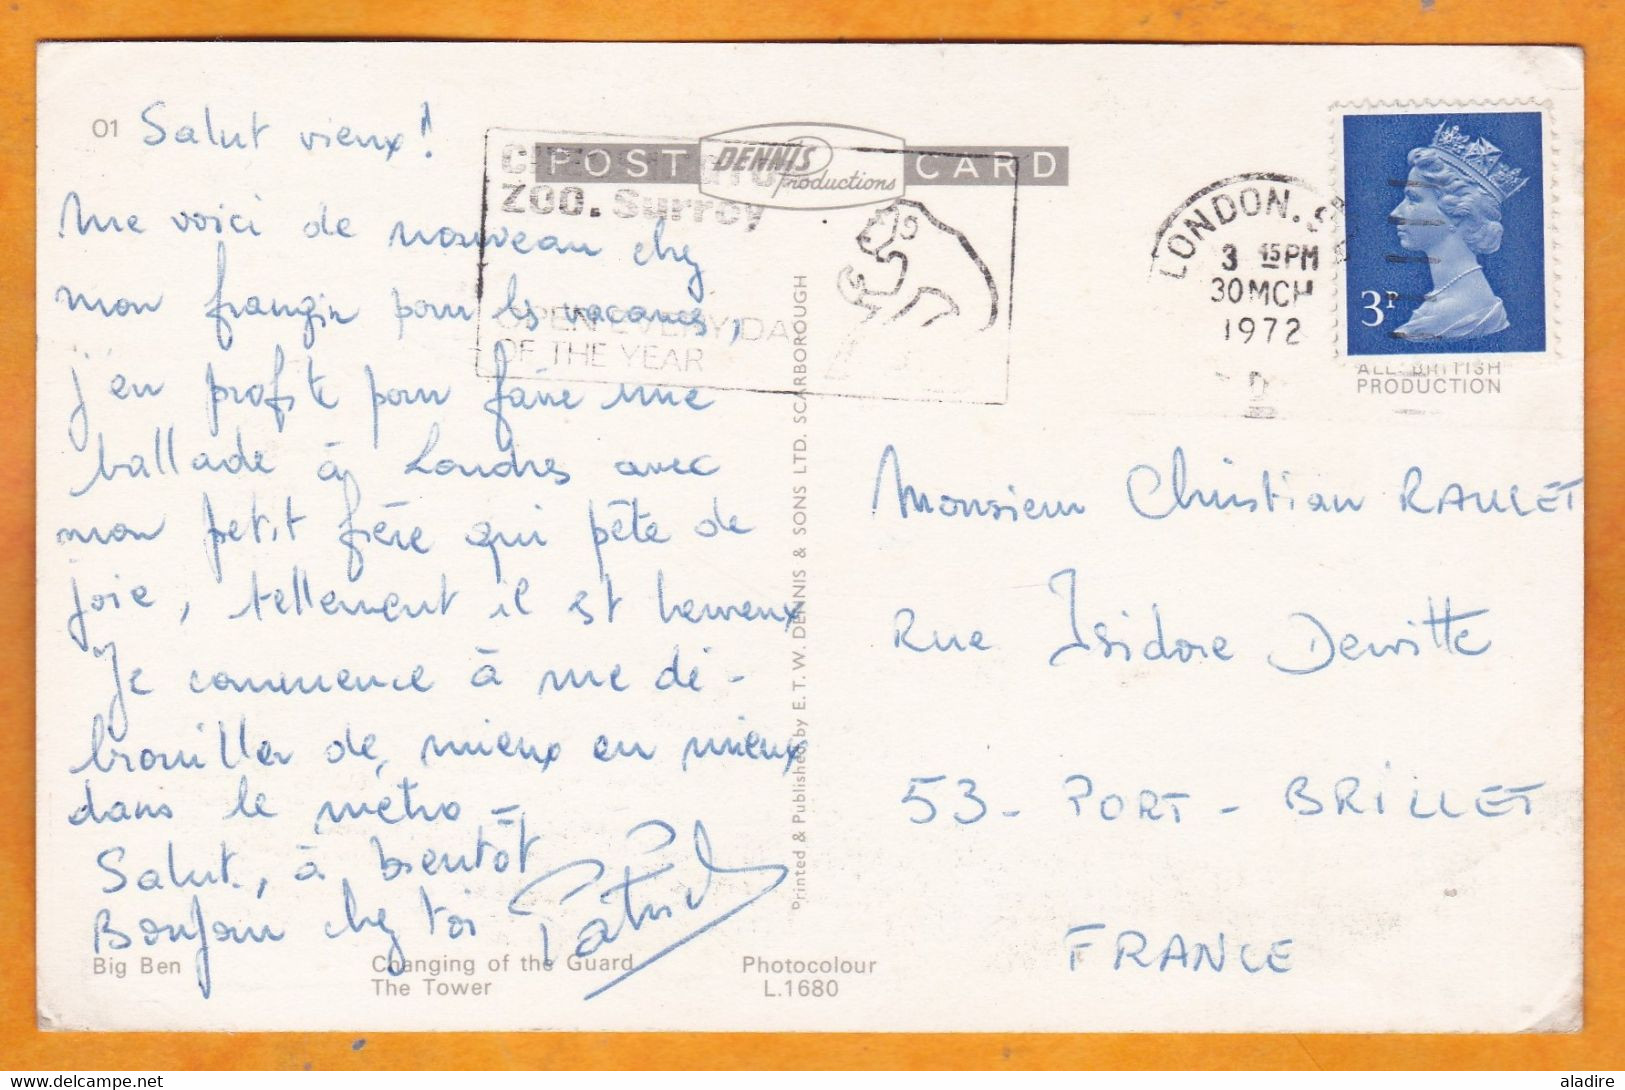 01 Salut vieux !
me voici de nouveau chez
mon frangin pour les vacances,
j'en profite pour faire une
ballade à Londres avec
mon petit frère qui pête de
joie, tellement il est heureux
Je commence à me dé -
brouiller de, mieux en mieux
dans le métro -
Salut, à bientôt
Bonjour chez toi Patrick
Big Ben Changing of the Guard Photocolour
The Tower L.1680
POST DENNIS productions CARD
ZOO. Surrey
OPEN EVERY DAY
OF THE YEAR
Printed & Published by E. T. W. DENNIS & SONS LTD. SCARBOROUGH
LONDON. S
3 15 PM
30 MCH
1972
3P
ALL BRITISH
PRODUCTION
Monsieur Christian RAULET
Rue Isidore Dewitte
53 - PORT - BRILLET
FRANCE
aladire